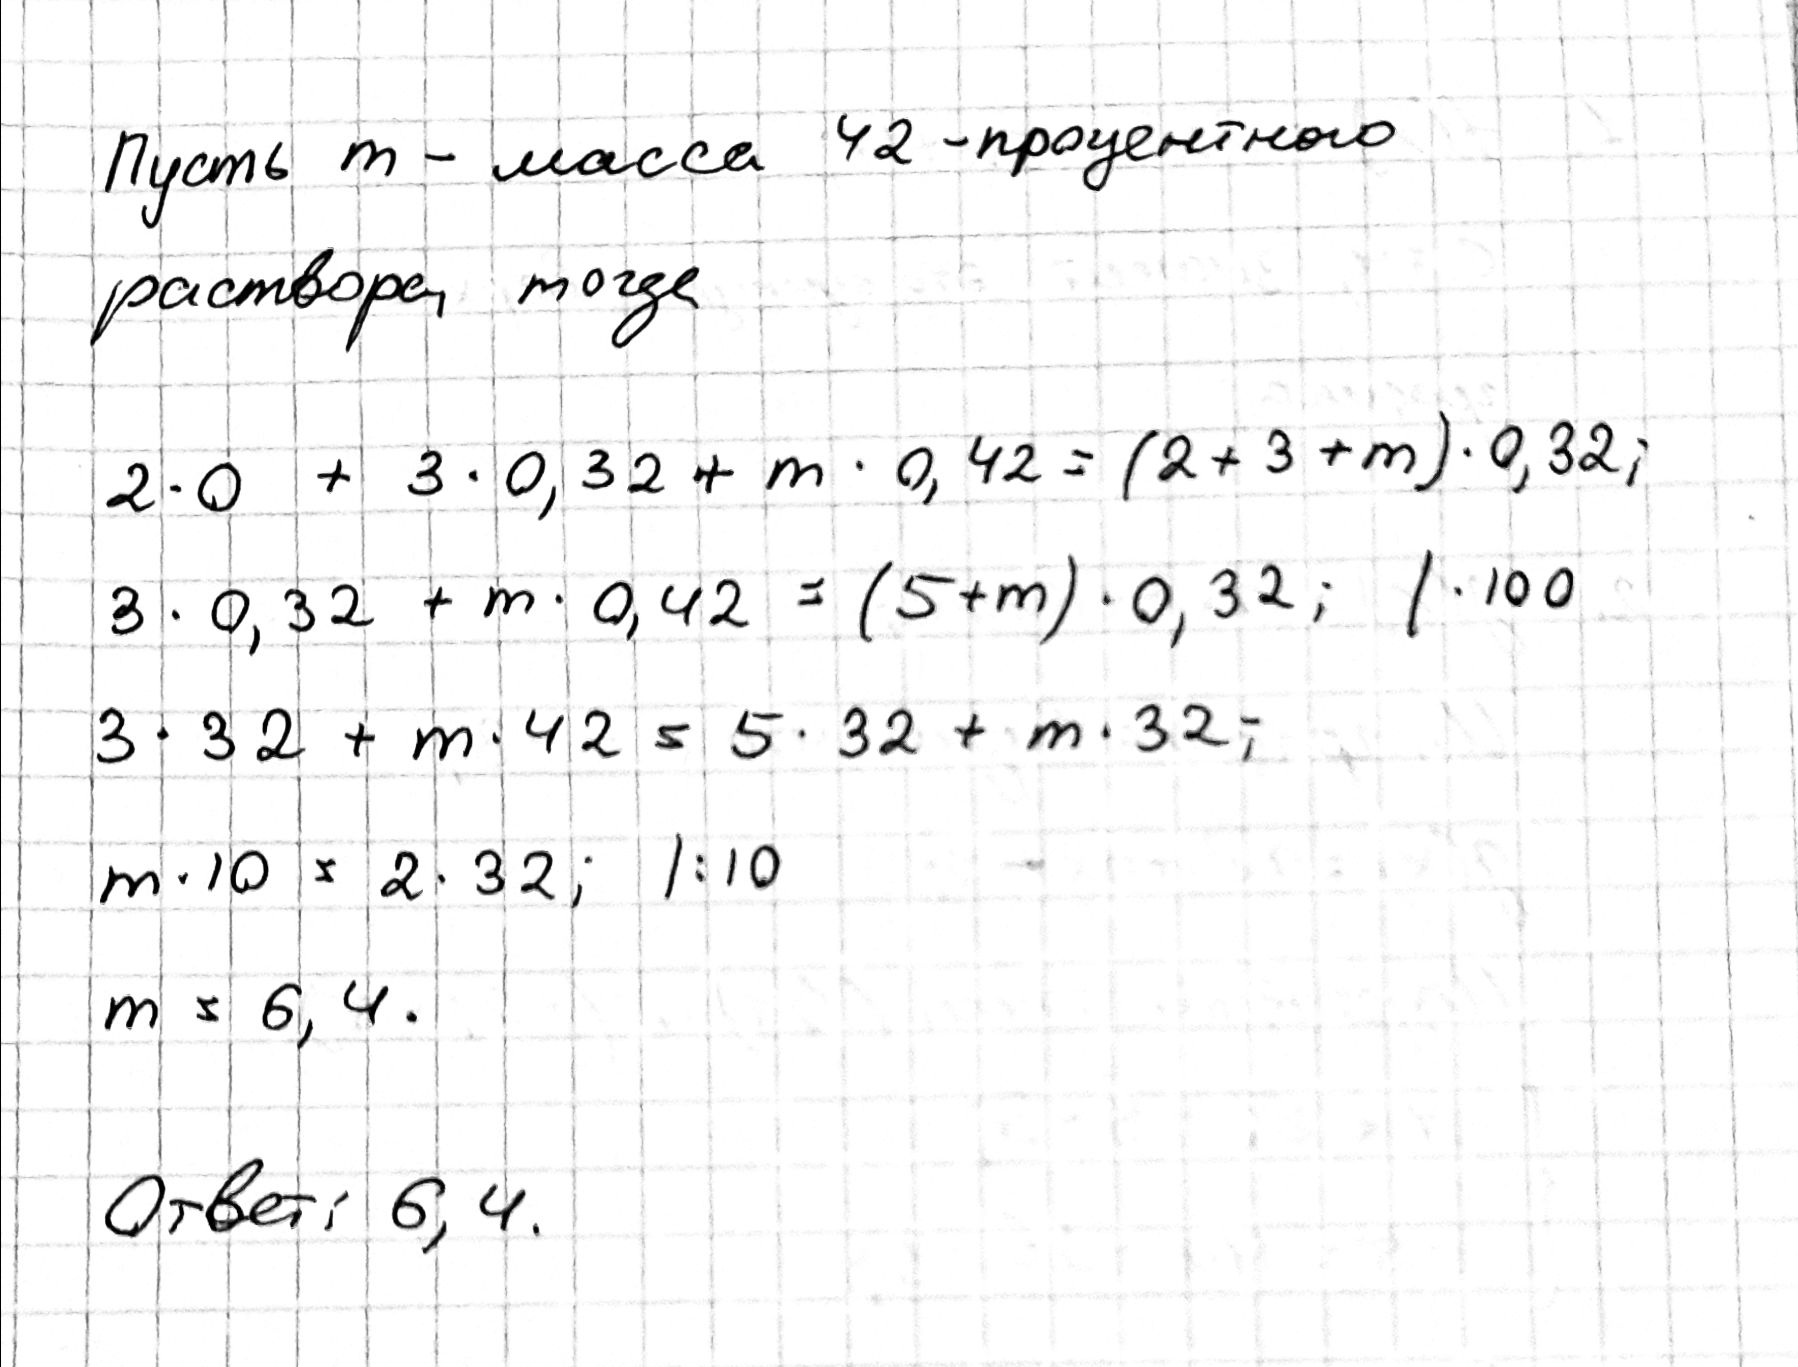 Пусть m - масса 42-процентного
раствора, тогда
2·0 + 3·0,32 + m·0,42 = (2+3+m)·0,32;
3·0,32 + m·0,42 = (5+m)·0,32; |·100
3·32 + m·42 = 5·32 + m·32;
m·10 = 2·32; |:10
m = 6,4.
Ответ: 6,4.